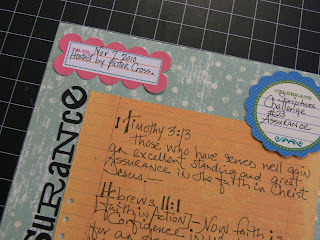 DATE: Nov 7 2010
Hosted by Potter Cross.
CELEBRATE
Scripture
Challenge
#23
Assurance
SURANCE
1 Timothy 3:13
those who have served well gain
an excellent standing and great
Assurance in the faith in Christ
Jesus.~
Hebrews 11:1
[Faith in Action] - Now faith is
Confidence in
for an